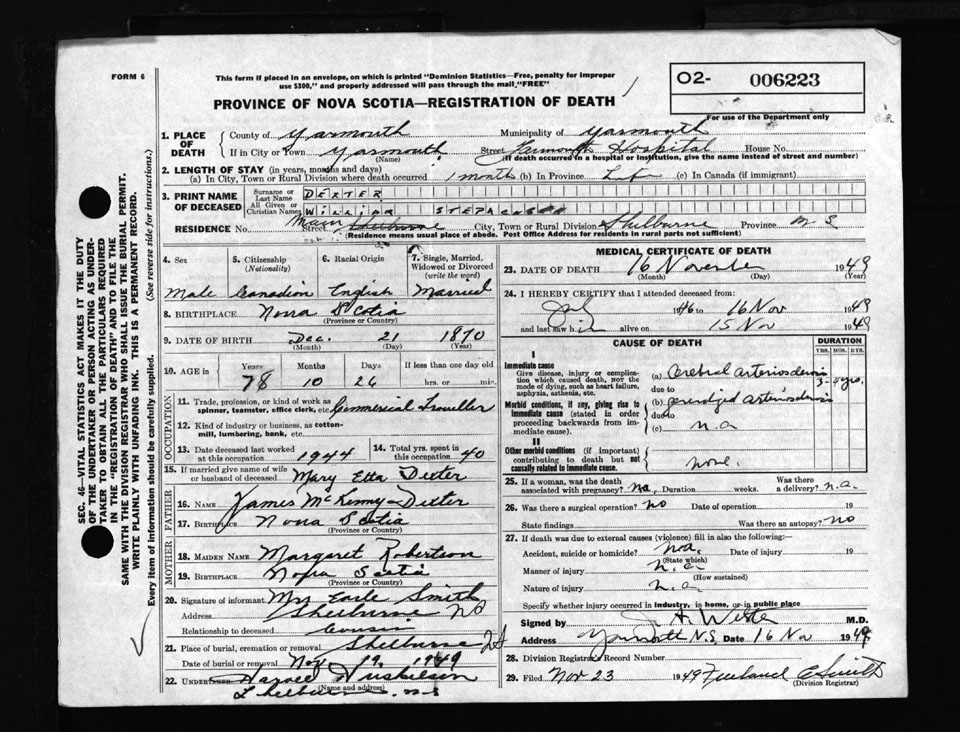 FORM 6
This form if placed in an envelope, on which is printed "Dominion Statistics—Free, penalty for improper
use $300," and properly addressed will pass through the mail "FREE"
O2- 006223
For use of the Department only
PROVINCE OF NOVA SCOTIA—REGISTRATION OF DEATH
1. PLACE OF DEATH
County of Yarmouth Municipality of Yarmouth
If in City or Town Yarmouth Street Yarmouth Hospital House No.
(Name) (If death occurred in a hospital or institution, give the name instead of street and number)
2. LENGTH OF STAY (in years, months and days)
(a) In City, Town or Rural Division where death occurred 1 month (b) In Province Life (c) In Canada (if immigrant)
3. PRINT NAME OF DECEASED
Surname or Last Name DEXTER
All Given or Christian Names WILLIAM
RESIDENCE No. Street Main City, Town or Rural Division Shelburne Province N S
(Residence means usual place of abode. Post Office Address for residents in rural parts not sufficient)
4. Sex
5. Citizenship (Nationality)
6. Racial Origin
7. Single, Married, Widowed or Divorced (write the word)
Male Canadian English Married
8. BIRTHPLACE Nova Scotia
(Province or Country)
9. DATE OF BIRTH Dec. 21 1870
(Month) (Day) (Year)
10. AGE in Years Months Days If less than one day old
78 10 26 hrs. or min.
OCCUPATION
11. Trade, profession, or kind of work as
spinner, teamster, office clerk, etc. Commercial Traveller
12. Kind of industry or business, as cotton-
mill, lumbering, bank, etc.
13. Date deceased last worked at this occupation 1944
14. Total yrs. spent in this occupation 40
15. If married give name of wife
or husband of deceased Mary Etta Dexter
FATHER
16. NAME James McKinny Dexter
17. BIRTHPLACE Nova Scotia
(Province or Country)
MOTHER
18. MAIDEN NAME Margaret Robertson
19. BIRTHPLACE Nova Scotia
(Province or Country)
20. Signature of informant Mrs Earle Smith
Address Shelburne NS
Relationship to deceased Cousin
21. Place of burial, cremation or removal Shelburne
Date of burial or removal Nov 19. 1949
22. Undertaker Harold Huskilson
(Name and address)
Shelburne N-S
MEDICAL CERTIFICATE OF DEATH
23. DATE OF DEATH 16 November 1949
(Month) (Day) (Year)
24. I HEREBY CERTIFY that I attended deceased from:
July 1946 to 16 Nov 1949
and last saw him alive on 15 Nov 1949
CAUSE OF DEATH
DURATION
YRS. MOS. DYS.
I
Immediate cause
Give disease, injury or complica-
tion which caused death, NOT the
mode of dying, such as heart failure,
asphyxia, asthenia, etc.
(a) Cerebral arteriosclerosis 3-4 yrs.
due to
Morbid conditions, if any, giving rise to
immediate cause (stated in order
proceeding backwards from im-
mediate cause).
(b) generalized arteriosclerosis
due to
(c) n.a
II
Other morbid conditions (if important)
contributing to death but not
causally related to immediate cause.
none.
25. If a woman, was the death
associated with pregnancy? na. Duration weeks. Was there
a delivery? n.a.
26. Was there a surgical operation? no Date of operation 19
State findings Was there an autopsy? no
27. If death was due to external causes (violence) fill in also the following:
Accident, suicide or homicide? n.a. Date of injury 19
(State which)
Manner of injury n.a
(How sustained)
Nature of injury n.a.
Specify whether injury occurred in industry, in home, or in public place
Signed by M.D.
Address Yarmouth N.S. Date 16 Nov 1949.
28. Division Registrar's Record Number
29. Filed Nov 23 1949 Smith
(Division Registrar)
SEC. 46—VITAL STATISTICS ACT MAKES IT THE DUTY
OF THE UNDERTAKER OR PERSON ACTING AS UNDER-
TAKER TO OBTAIN ALL THE PARTICULARS REQUIRED
IN THE "REGISTRATION OF DEATH" AND TO FILE THE
SAME WITH THE DIVISION REGISTRAR WHO SHALL ISSUE THE BURIAL PERMIT.
WRITE PLAINLY WITH UNFADING INK. THIS IS A PERMANENT RECORD.
Every item of information should be carefully supplied. (See reverse side for instructions.)